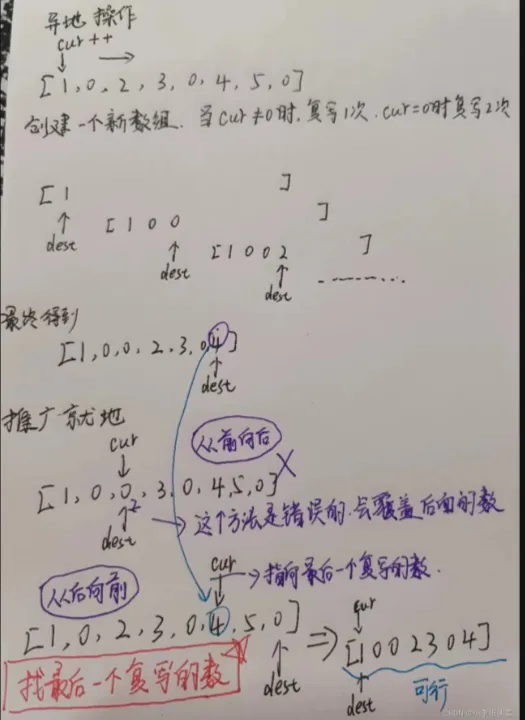 异地操作
cur++
[1,0,2,3,0,4,5,0]
创建一个新数组. 当cur≠0时,复写1次.cur=0时复写2次
[1 ]
dest
[1 0 0 ]
dest
[1 0 0 2 ]
dest
最终得到
[1,0,0,2,3,0,4]
dest
推广就地
cur
从前向后
[1,0,0,3,0,4,5,0] ×
2
dest
这个方法是错误的.会覆盖后面的数
从后向前
cur
指向最后一个复写的数.
[1,0,2,3,0,4,5,0] ⇒ [1 0 0 2 3 0 4]
cur
dest
dest
可行
找最后一个复写的数